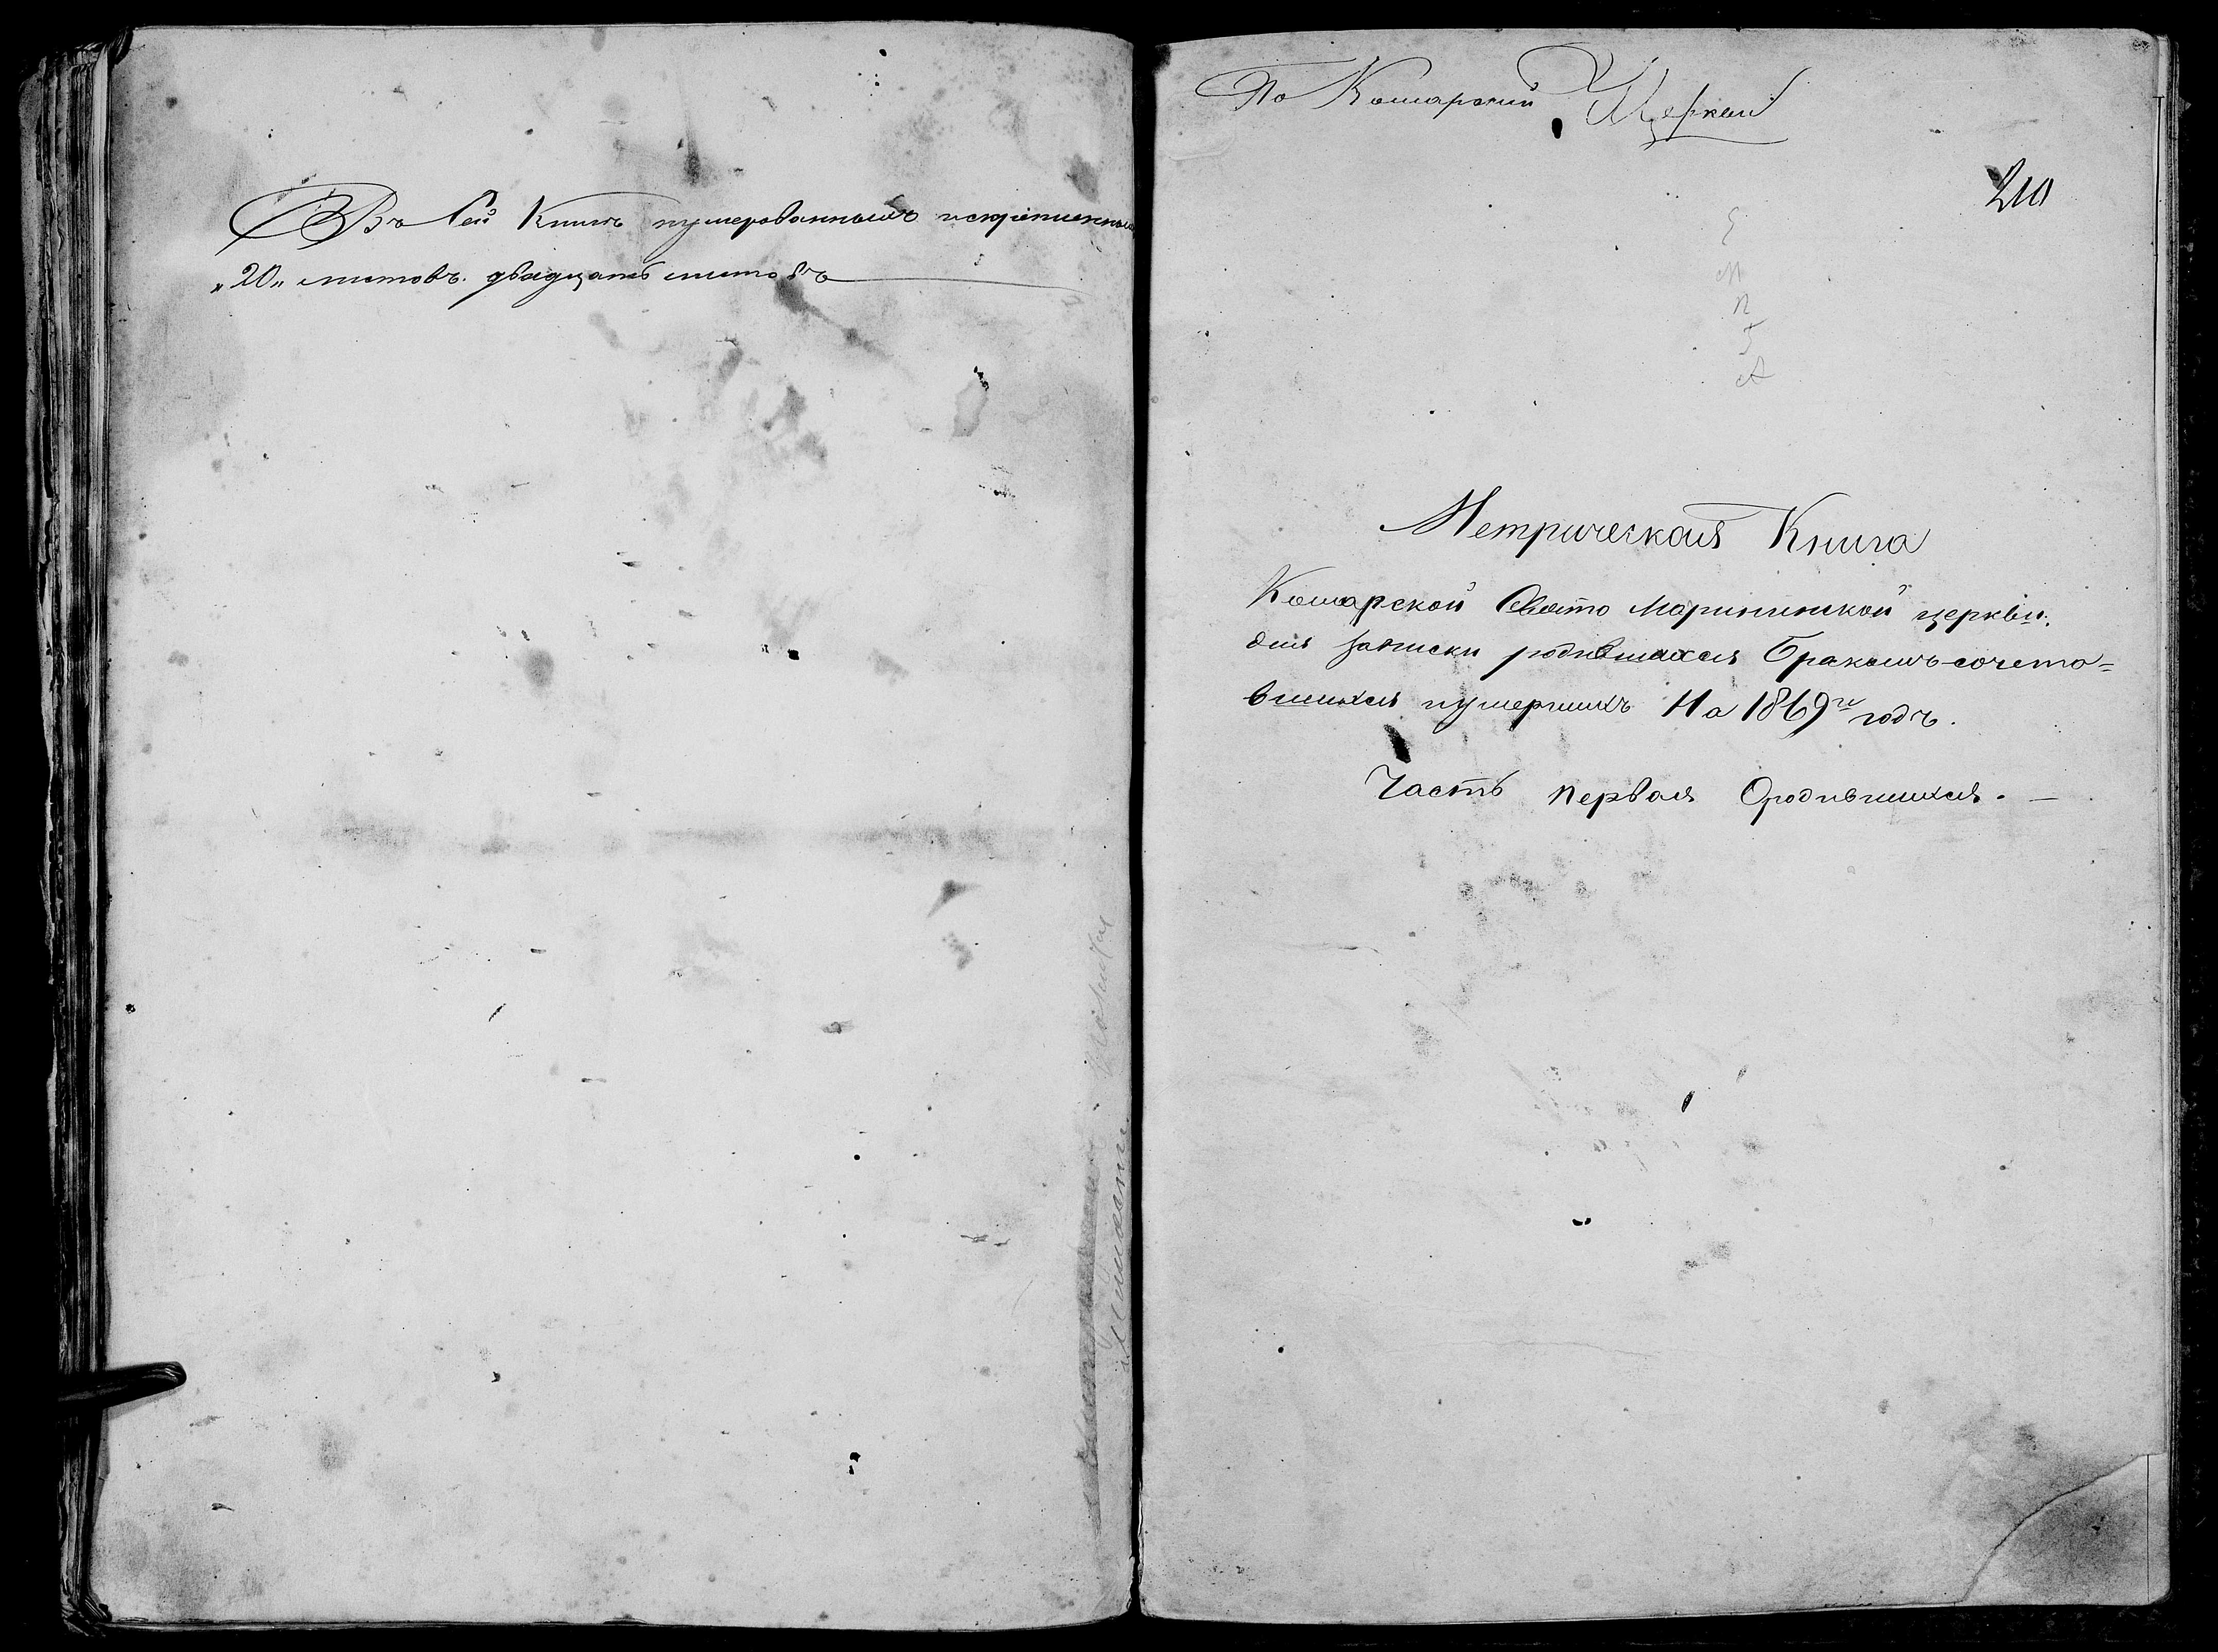 Въ сей Книгѣ нумерованныхъ искрепленныхъ
„20„ листовъ. двадцать листовъ
По Комарской Церкви
210
Метрическая Книга
Комарской Свято Марининской церкви.
для записки родившихся Бракомъ сочета=
вшихся иумершихъ На 1869й годъ.
Часть первая Ородившихся. —